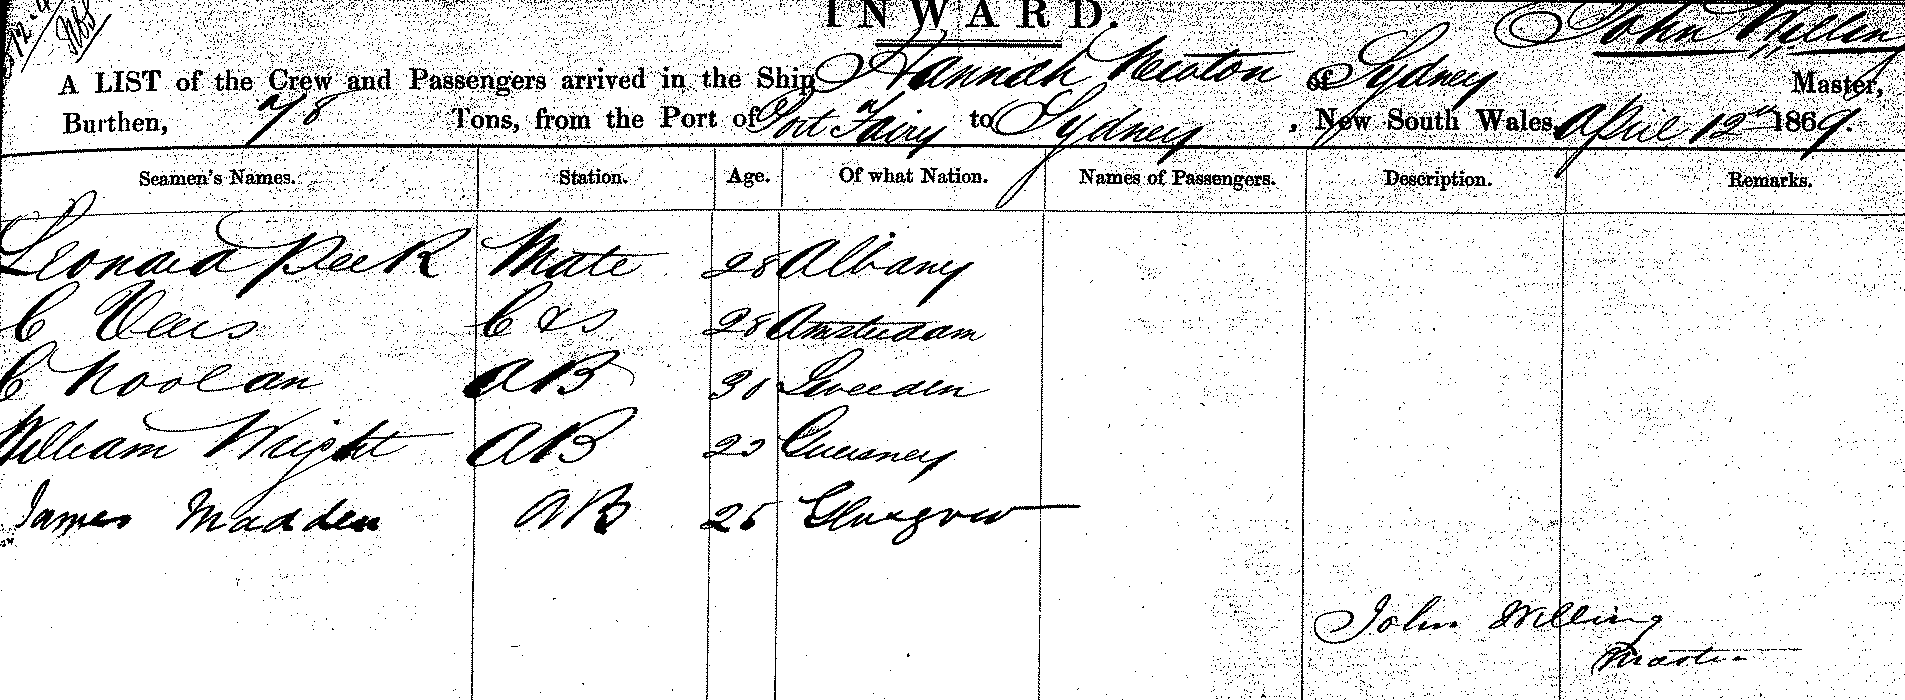 INWARD.
John Willing
A LIST of the Crew and Passengers arrived in the Ship Hannah Newton of Sydney Master,
Burthen, 78 Tons, from the Port of Port Fairy to Sydney, New South Wales, April 12th 1869.
Seamen's Names. Station. Age. Of what Nation. Names of Passengers. Description. Remarks.
Leonard Peek Mate 28 Albany
C Veers C & S 28 Amsterdam
C Noolan AB 30 Sweeden
William Wright AB 22 Guersney
James Madden AB 25 Glasgow
John Willing
Master